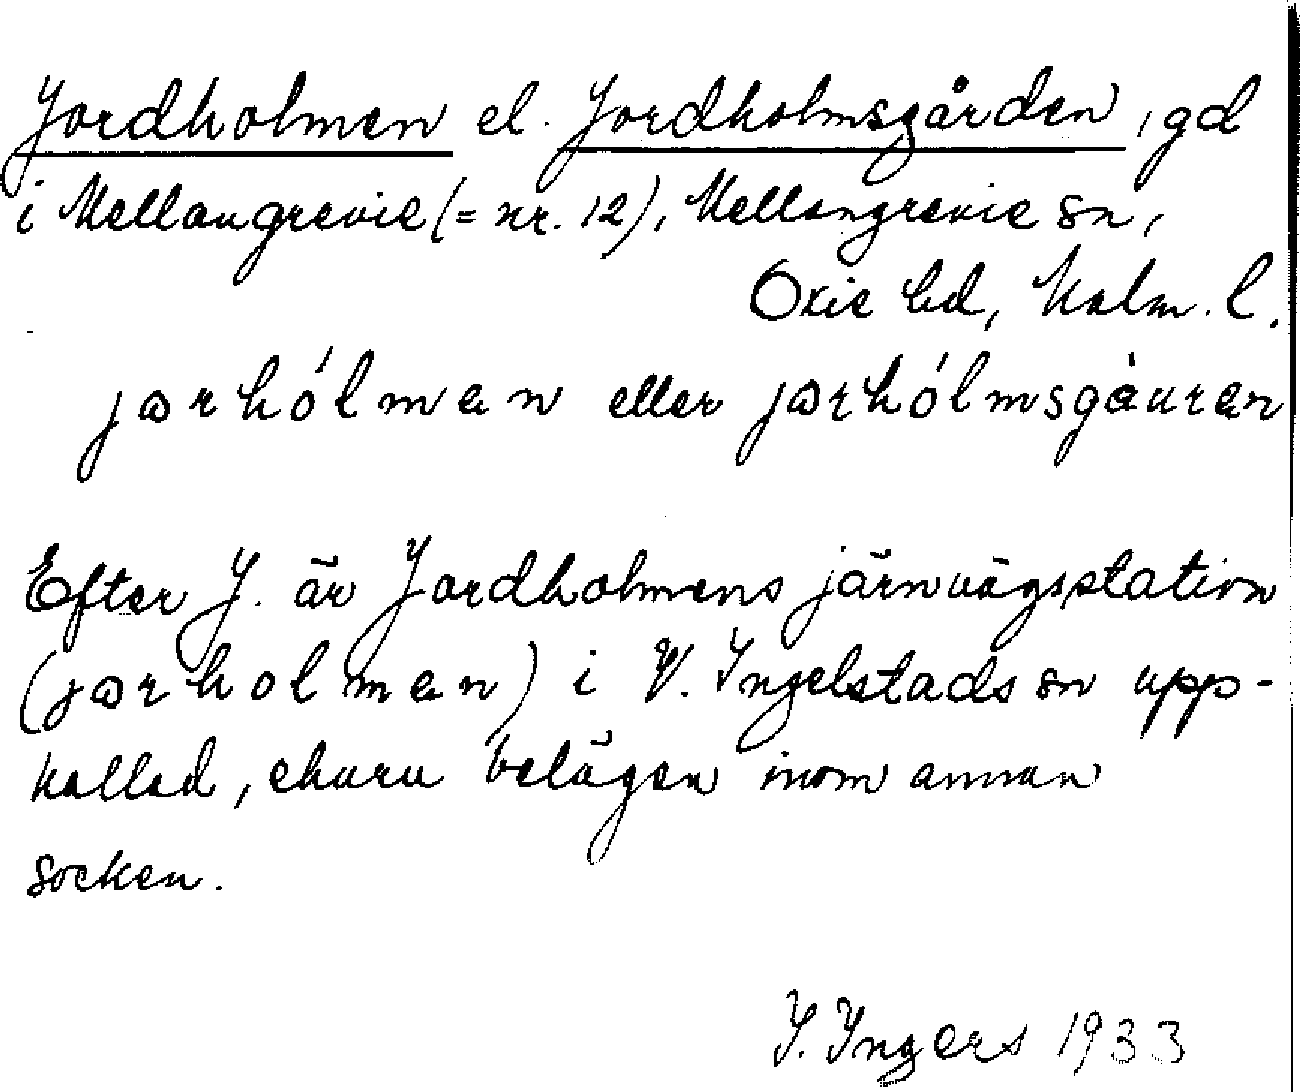 Jordholmen el. Jordholmsgården, gd
i Mellangrevie (= nr. 12), Mellangrevie sn,
Oxie hd, Malm. l.
jɷrhólmen eller jɷrhólmsgåuren
Efter J. är Jordholmens järnvägsstation
(jɷrholmen) i V. Ingelstads sn upp-
kallad, churu belägen inom annan
socken.
I. Ingers 1933